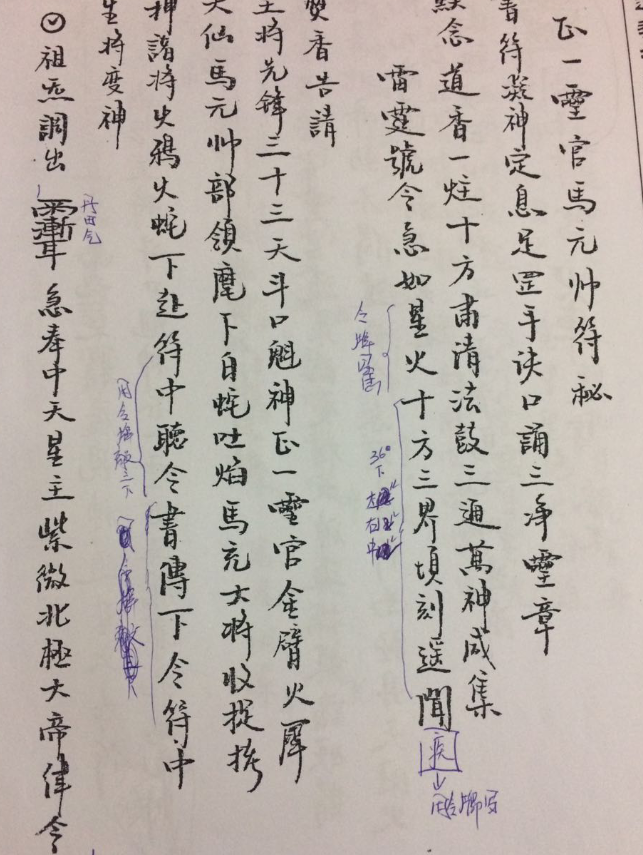 正一靈官馬元帅符秘
書符凝神定息足罡手诀口誦三净靈章
念道香一炷十方肅清法鼓三通萬神咸集
雷霆號令急如星火十方三界頃刻遥聞
疾
令牌
36下
左
右
中
香告請
主将先锋三十三天斗口魁神正一靈官金臂火犀
大仙馬元帅部領麾下白蛇吐焰馬充大将收捉
神諸将火鴉火蛇下赴符中聽令書傳下令符中
用令牌
三下
生将变神
祖炁調出
急奉中天星主紫微北極大帝律令
丹田